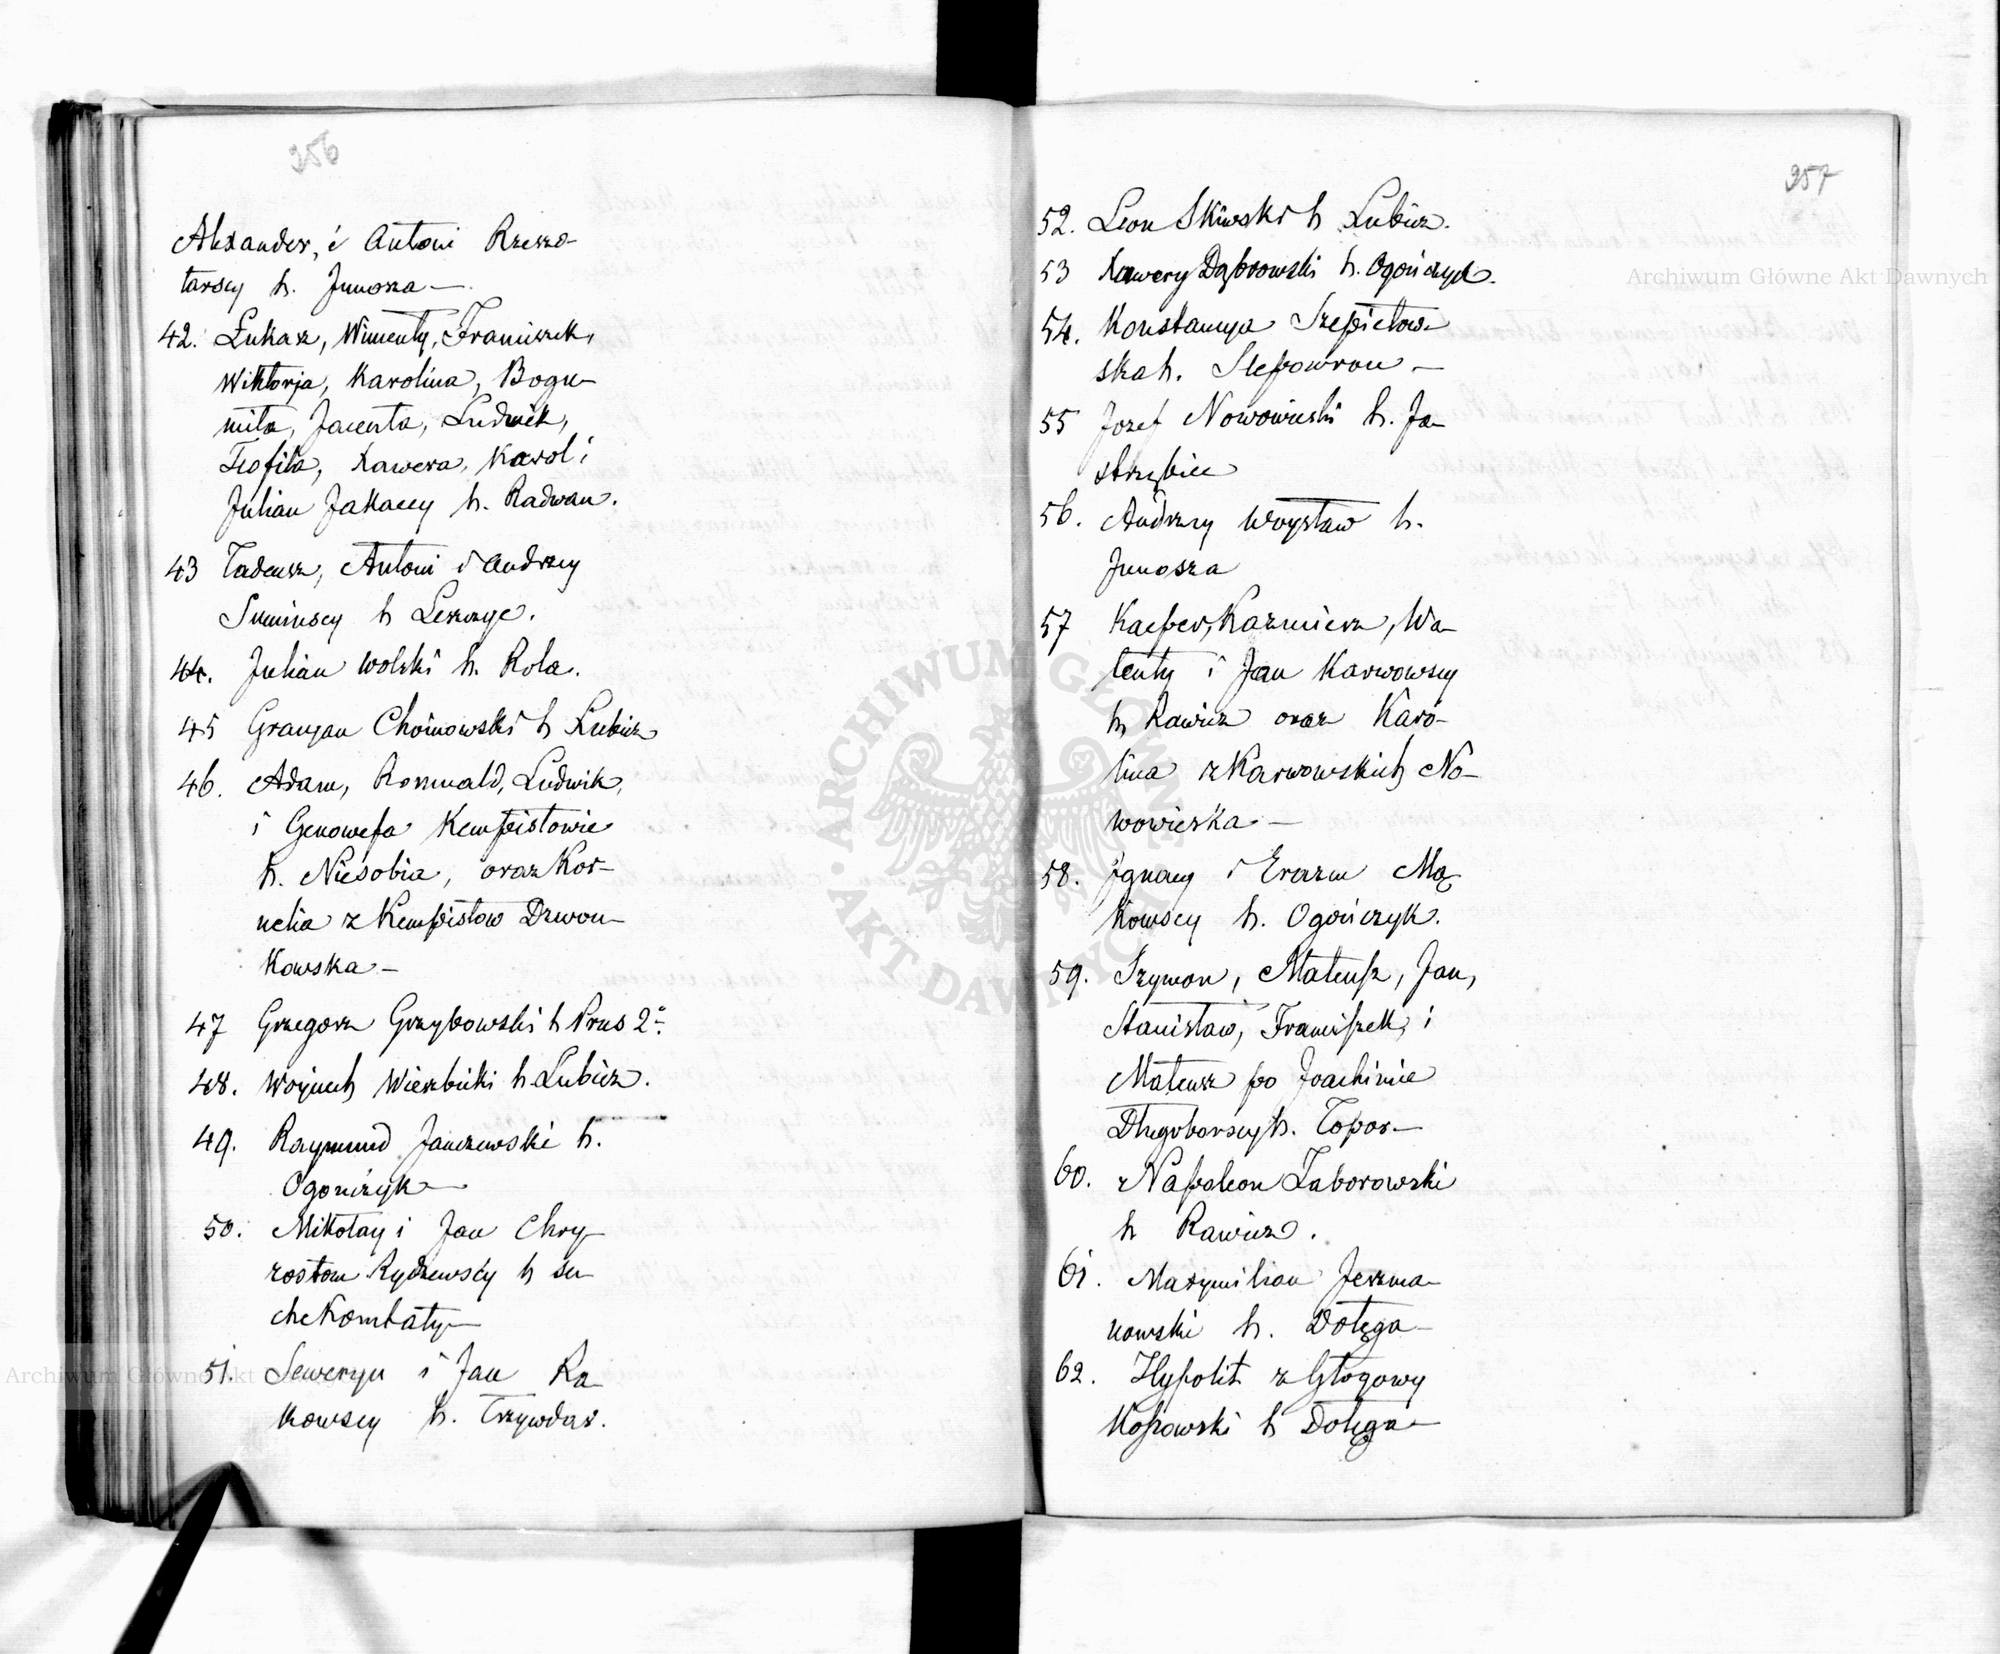 956
Alexander, i Antoni Rzeszo-
tarscy h. Junosza —
42. Łukasz, Wincenty, Franciszek,
Wiktorja, Karolina, Bogu-
miła, Jacenta, Ludwik,
Teofila, Xawera, Karol i
Julian Jakaccy h. Radwan.
43 Tadeusz, Antoni i Andrzey
Sumińscy h Leszczyc.
44. Julian Wolski h. Rola.
45 Grancjan Choinowski h Lubicz
46. Adam, Romuald, Ludwik,
i Genowefa Kempistowie
h. Niesobia, oraz Kor-
nelia z Kempistow Dzwon-
kowska —
47 Grzegorz Grzybowski h Prus 2º.
48. Woyciech Wierzbicki h Lubicz.
49. Raymund Janczewski h.
Ogończyk —
50. Mikołay i Jan Chry-
zostom Rydzewscy h Su-
chekomnaty —
51. Seweryn i Jan Ra-
kowscy h. Trzywdar.
957
52. Leon Skiwski h Lubicz.
53 Xawery Dąbrowski h. Ogończyk.
54. Konstancya Szepietow-
ska h. Slepowron —
55 Jozef Nowowieski h. Ja-
strzębiec
56. Andrzey Woysław h.
Junosza
57 Kacper, Kazmierz, Wa-
lenty i Jan Karwowscy
h Rawicz oraz Karo-
lina z Karwowskich No-
wowieska —
58. Ignacy i Erazm Mą-
kowscy h. Ogończyk.
59. Szymon, Mateusz, Jan,
Stanisław, Franciszek, i
Mateusz po Joachimie
Długoborscy h. Topor —
60. Napoleon Zaborowski
h Rawicz.
61. Maxymilian Jerzma-
nowski h. Dołęga —
62. Hypolit z Głogowy
Kossowski h Dołęga —
Archiwum Główne Akt Dawnych
ARCHIWUM GŁÓWNE AKT DAWNYCH
Archiwum Główne Akt